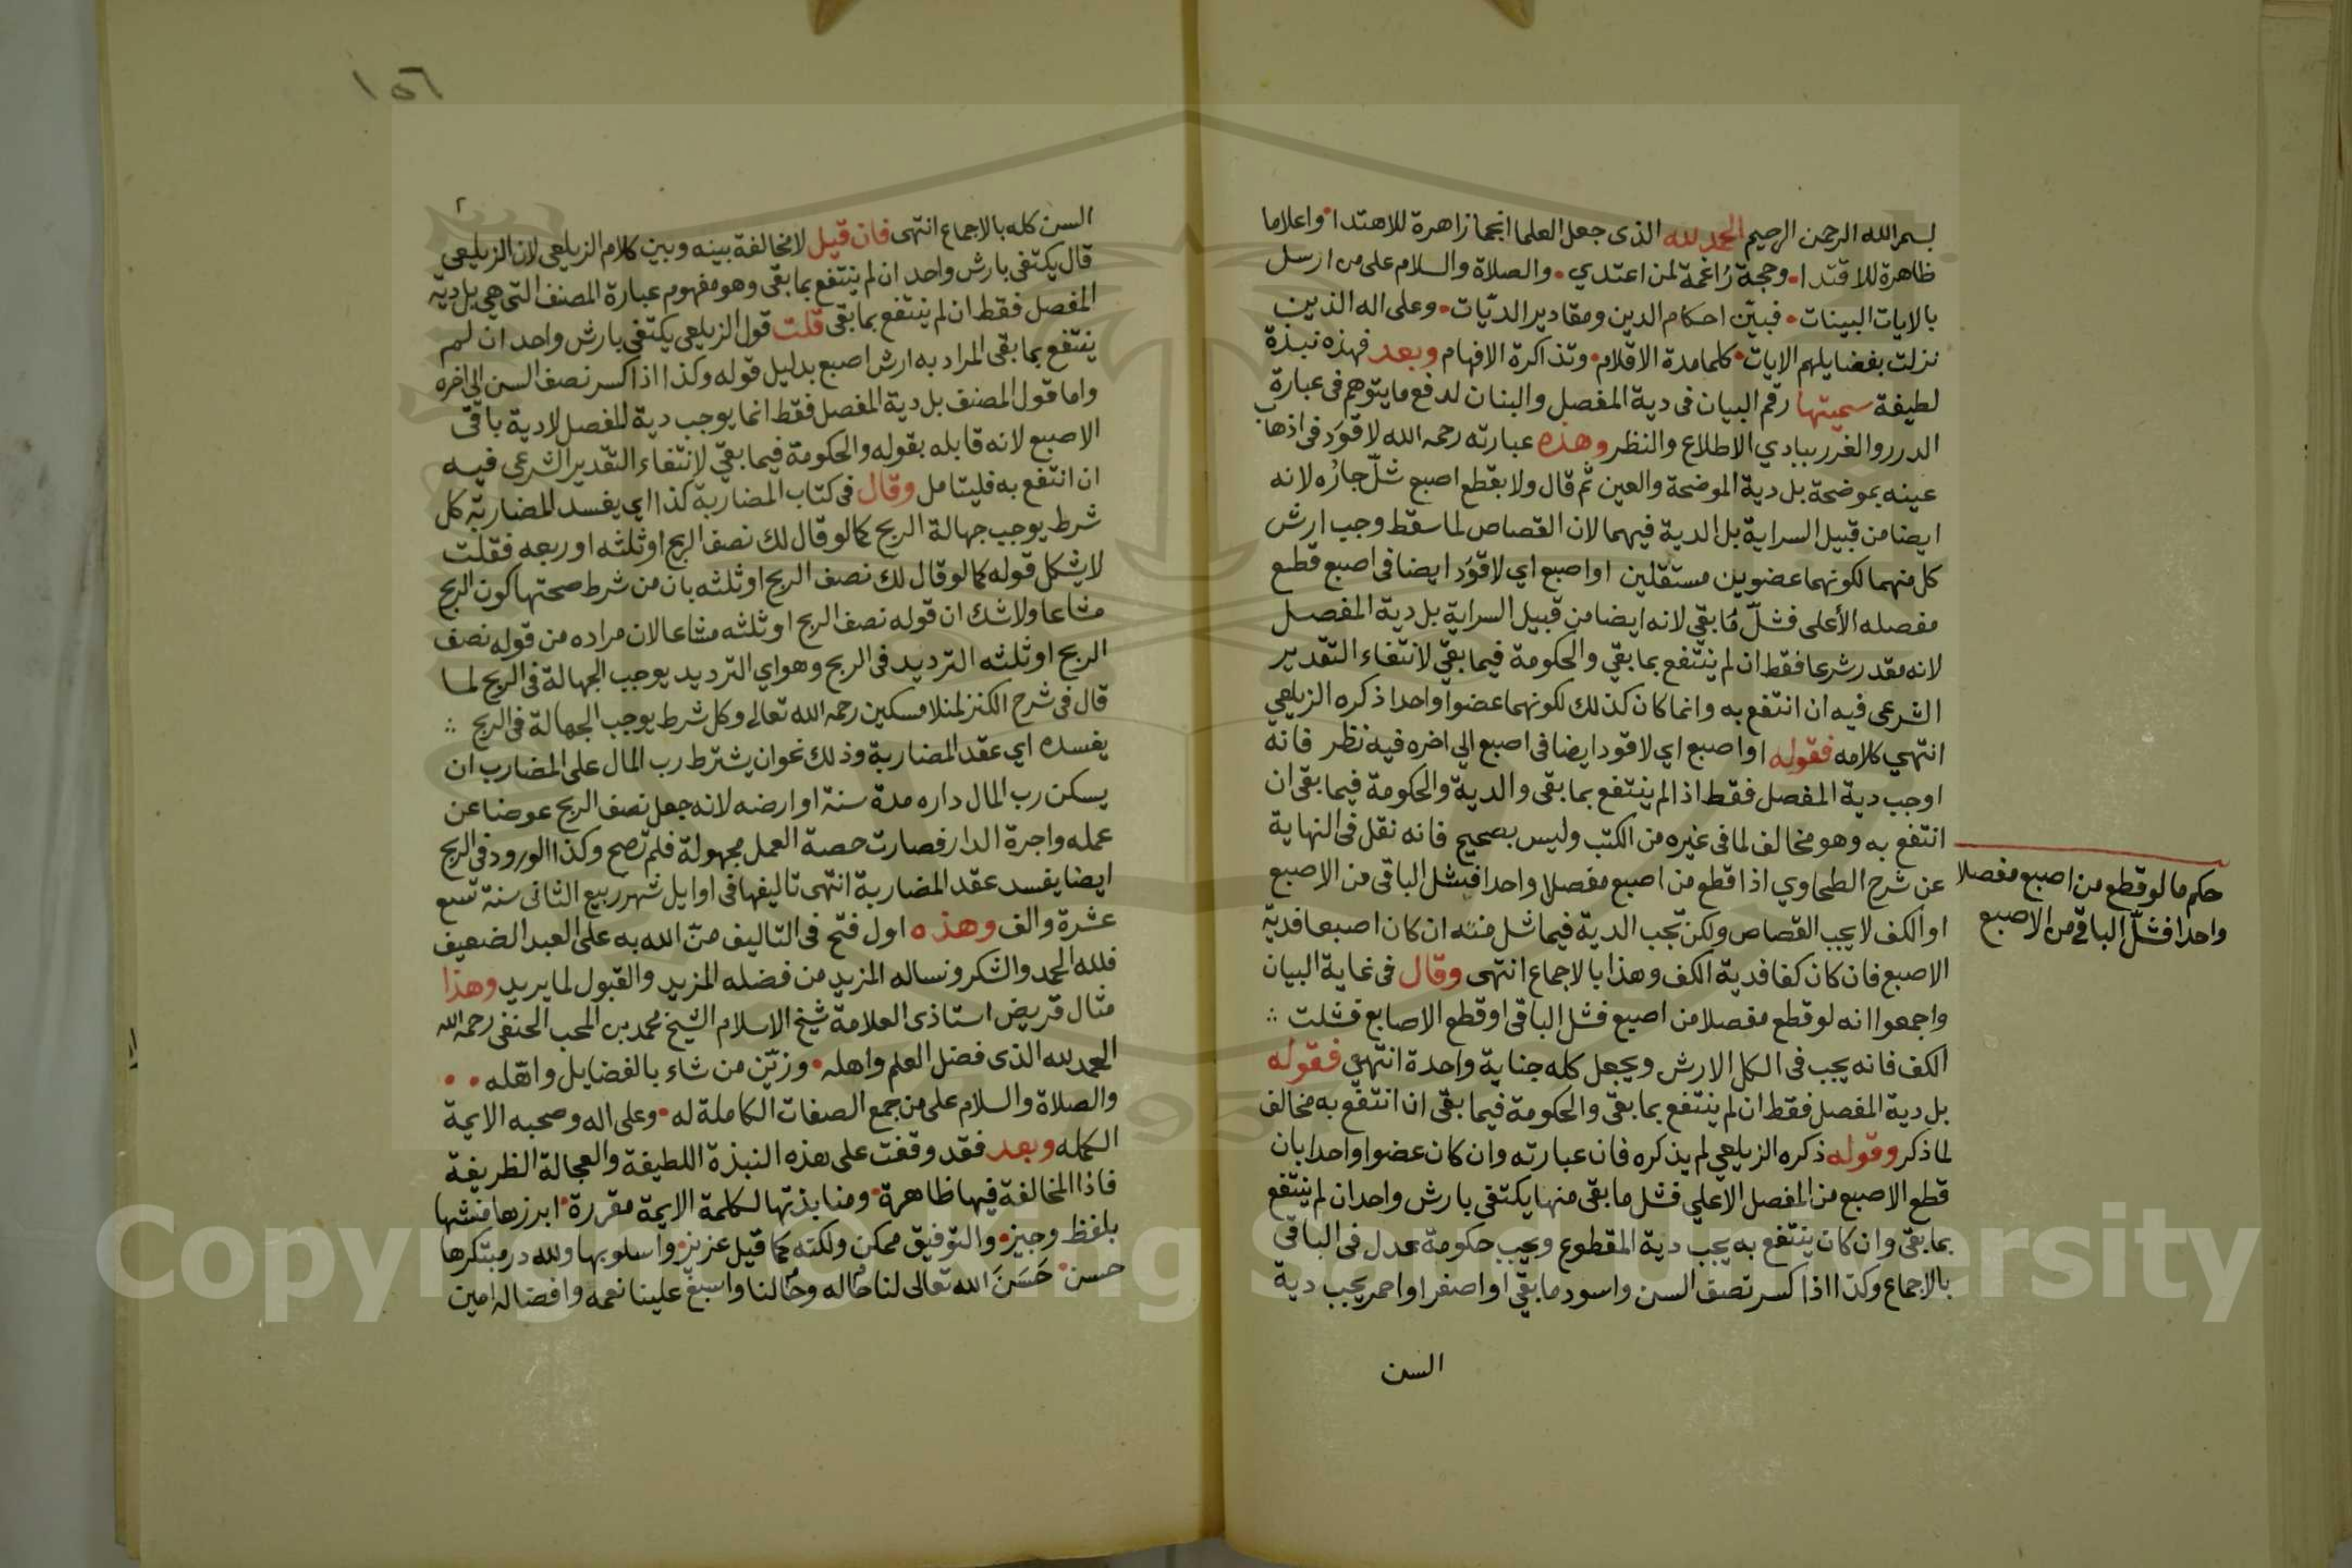 بسم الله الرحمن الرحيم الحمد لله الذى جعل العلما انجما زاهرة للاهتدا واعلاما
ظاهرة للاقتدا وحجة راغمة لمن اعتدي والصلاة والسلام على من ارسل
بالايات البينات فبيّن احكام الدين ومقادير الديّات وعلى اله الذين
نزلت بفضايلهم الايات كلما مدة الاقلام وتذاكرة الافهام وبعد فهذه نبذة
لطيفة سميتها رقم البيان فى دية المفصل والبنان لدفع ما يتوهم فى عبارة
الدرر والغرر ببادي الاطلاع والنظر وهذه عبارته رحمه الله لا قوَد فى اذهاب
عينه بموضحة بل دية الموضحة والعين ثم قال ولا بقطع اصبع شلّ جارُه لانه
ايضا من قبيل السراية بل الدية فيهما لان القصاص لما سقط وجب ارش
كل منهما لكونهما عضوين مستقلين او اصبع اي لا قوَد ايضا فى اصبع قطع
مفصله الأعلى فشلّ مَا بقي لانه ايضا من قبيل السراية بل دية المفصل
لانه مقدر شرعا فقط ان لم ينتفع بما بقي والحكومة فيما بقي لانتفاء التقدير
الشرعى فيه ان انتفع به وانما كان كذلك لكونهما عضوا واحدا ذكره الزيلعي
انتهي كلامه فقوله او اصبع اي لا قود ايضا فى اصبع الى اخره فيه نظر فانه
اوجب دية المفصل فقط اذا لم ينتفع بما بقى والدية والحكومة فيما بقى ان
انتفع به وهو مخالف لما فى غيره من الكتب وليس بصحيح فانه نقل فى النهاية
عن شرح الطحاوي اذا قطع من اصبع مفصلا واحدا فيشل الباقى من الاصبع
او الكف لا يجب القصاص ولكن تجب الدية فيما شل منه ان كان اصبعا فدية
الاصبع فان كان كفا فدية الكف وهذا بالاجماع انتهى وقال فى غاية البيان
واجمعوا انه لو قطع مفصلا من اصبع فشل الباقى او قطع الاصابع فشلت
الكف فانه يجب فى الكل الارش ويجعل كله جناية واحدة انتهى فقوله
بل دية المفصل فقط ان لم ينتفع بما بقى والحكومة فيما بقى ان انتفع به مخالف
لما ذكر وقوله ذكره الزيلعي لم يذكره فان عبارته وان كان عضوا واحدا بان
قطع الاصبع من المفصل الاعلى فشل ما بقى منها يكتفى بارش واحد ان لم ينتفع
بما بقى وان كان ينتفع به يجب دية المقطوع ويجب حكومة عدل فى الباقى
بالاجماع وكذا اذا كسر نصف السن واسود ما بقي او اصفر او احمر يجب دية
السن
حكم ما لو قطع من اصبع مفصلا
واحدا فشلّ الباقى من الاصبع
١٥٦
٢
السن كله بالاجماع انتهى فان قيل لا مخالفة بينه وبين كلام الزيلعى لان الزيلعي
قال يكتفى بارش واحد ان لم ينتفع بما بقى وهو مفهوم عبارة المصنف التى هي بل دية
المفصل فقط ان لم ينتفع بما بقى قلت قول الزيلعى يكتفى بارش واحد ان لم
ينتفع بما بقى المراد به ارش اصبع بدليل قوله وكذا اذا كسر نصف السن الى اخره
واما قول المصنف بل دية المفصل فقط انما يوجب دية المفصل لا دية باقى
الاصبع لانه قابله بقوله والحكومة فيما بقي لانتفاء التقدير الشرعى فيه
ان انتفع به فليتامل وقال فى كتاب المضاربة كذا اي يفسد المضاربة كل
شرط يوجب جهالة الربح كما لو قال لك نصف الربح او ثلثه او ربعه فقلت
لا يشكل قوله كما لو قال لك نصف الربح او ثلثه بان من شرط صحتها كون الربح
مشاعا ولا شك ان قوله نصف الربح او ثلثه مشاعا لان مراده من قوله نصف
الربح او ثلثه الترديد فى الربح وهو اي الترديد يوجب الجهالة فى الربح لما
قال فى شرح الكنز لمنلا مسكين رحمه الله تعالى وكل شرط يوجب الجهالة فى الربح
يفسده اي عقد المضاربة وذلك نحو ان يشترط رب المال على المضارب ان
يسكن رب المال داره مدة سنة او ارضه لانه جعل نصف الربح عوضا عن
عمله واجرة الدار فصارت حصة العمل مجهولة فلم تصح وكذا لو ردد فى الربح
ايضا يفسد عقد المضاربة انتهى تاليفها فى اوايل شهر ربيع الثانى سنة تسع
عشرة والف وهذه اول فتح فى التاليف منّ الله به على العبد الضعيف
فلله الحمد والشكر ونساله المزيد من فضله المزيد والقبول لما يريد وهذا
مثال قريض استاذى العلامة شيخ الاسلام الشيخ محمد بن المحب الحنفى رحمه الله
الحمد لله الذى فضل العلم واهله وزيّن من شاء بالفضايل واهّله
والصلاة والسلام على من جمع الصفات الكاملة له وعلى اله وصحبه الايمة
الكمله وبعد فقد وقفت على هذه النبذة اللطيفة والعجالة الظريفة
فاذا المخالفة فيها ظاهرة ومنابذتها لكلمة الايمة مقررة ابرزها منشها
بلفظ وجيز والتوفيق ممكن ولكنه كما قيل عزيز واسلوبها ولله در مبتكرها
حسن حَسَنَ الله تعالى لنا حَاله وحَالنا واسبغ علينا نعمه وافضاله امين
Copyright © King Saud University